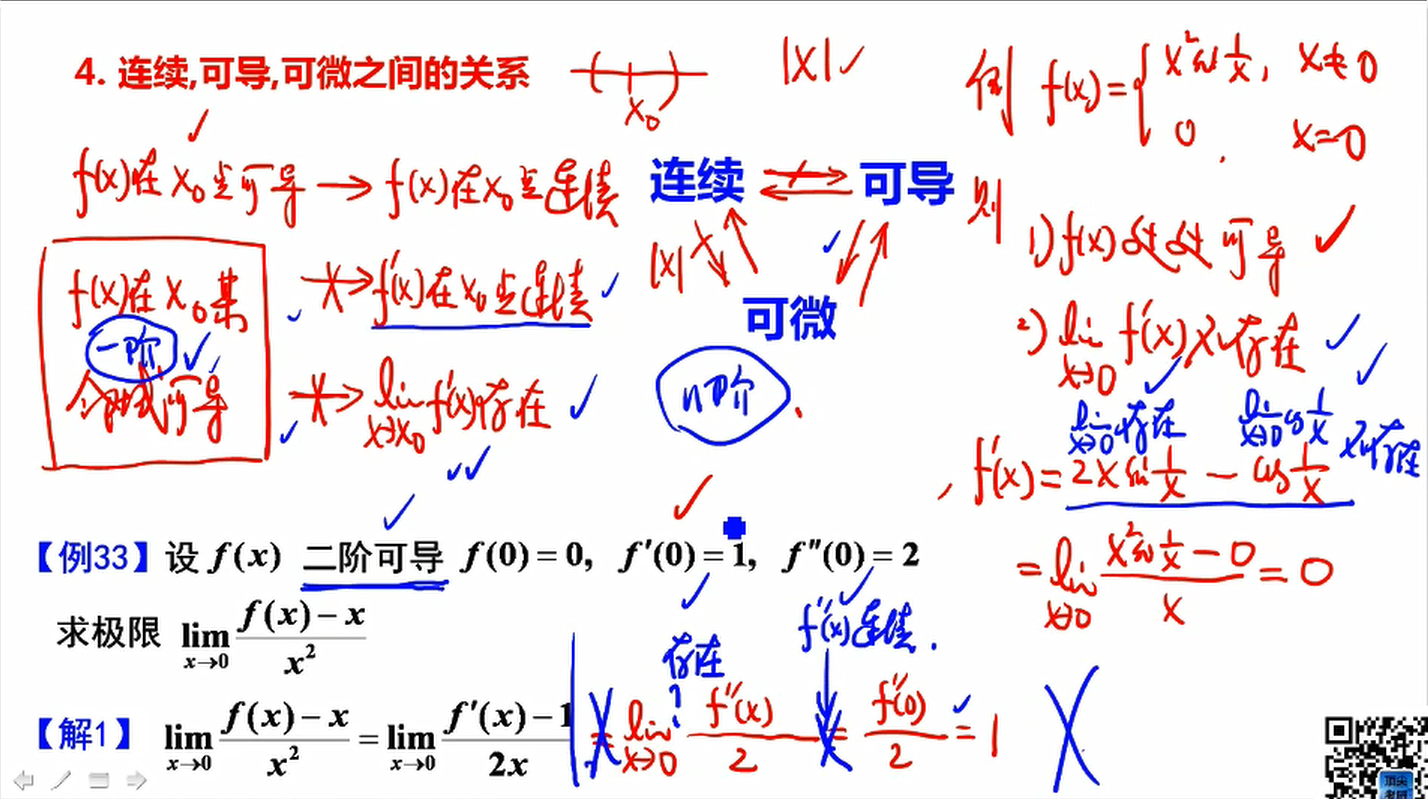 4. 连续,可导,可微之间的关系
x₀
|x|
例 f(x)={x² sin 1/x, x≠0
0, x=0
f(x)在x₀点可导 → f(x)在x₀点连续
连续 可导
则
1) f(x)处处可导
f(x)在x₀某
一阶
邻域可导
f'(x)在x₀点连续
lim x→x₀ f'(x)存在
|x|
可微
n阶
2) lim x→0 f'(x)不存在
lim x→0 存在
lim x→0 cos 1/x 不存在
f'(x)=2x sin 1/x − cos 1/x
=lim x→0 (x² sin 1/x − 0)/x = 0
【例33】设 f(x) 二阶可导 f(0)=0, f'(0)=1, f''(0)=2
求极限 lim x→0 (f(x)−x)/x²
存在
?
f''(x)连续.
【解1】 lim x→0 (f(x)−x)/x² = lim x→0 (f'(x)−1)/2x = lim x→0 f''(x)/2 = f''(0)/2 = 1
顶尖
考研